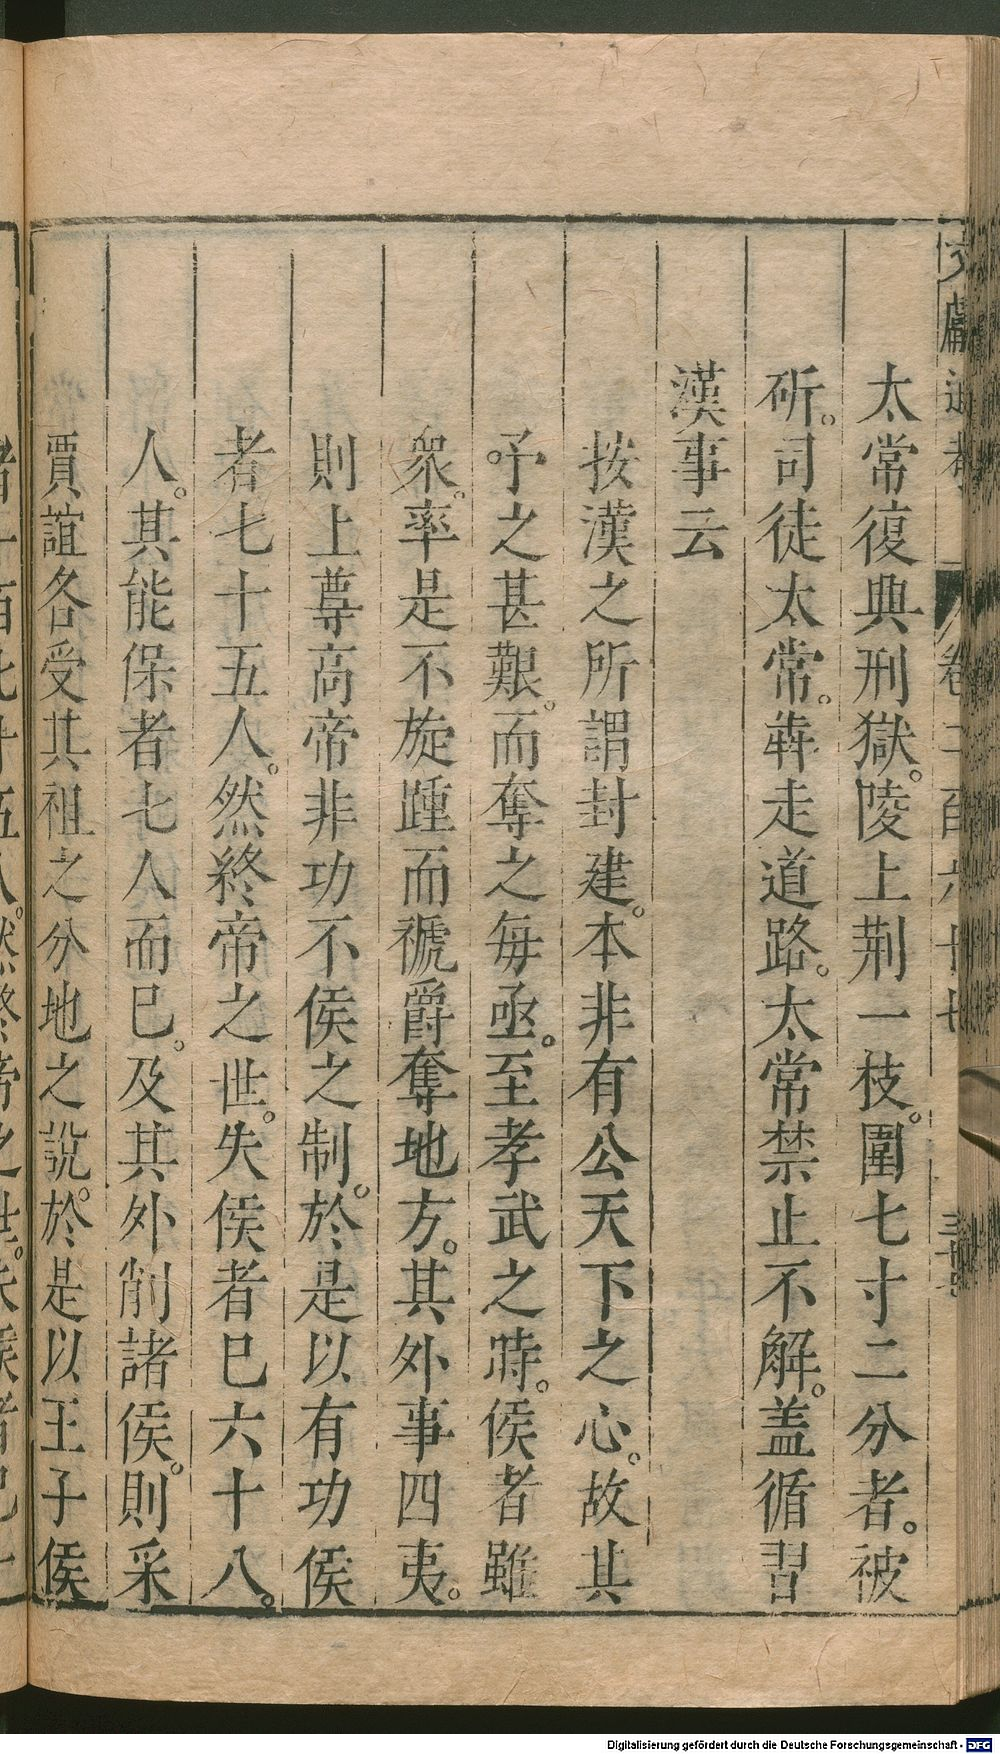 文獻通考 卷二百六十七
太常復典刑獄。陵上荆一枝。圍七寸二分者。被
斫。司徒太常。犇走道路。太常禁止不解。盖循習
漢事云
按漢之所謂封建。本非有公天下之心。故其
予之甚艱。而奪之每亟。至孝武之時。侯者雖
衆。率是不旋踵而褫爵奪地方。其外事四夷。
則上尊高帝非功不侯之制。於是以有功侯
者七十五人。然終帝之世。失侯者已六十八
人。其能保者七人而已。及其外削諸侯。則采
賈誼各受其祖之分地之說。於是以王子侯
者一百七十五人。然終帝之世。失侯者已一
Digitalisierung gefördert durch die Deutsche Forschungsgemeinschaft - DFG